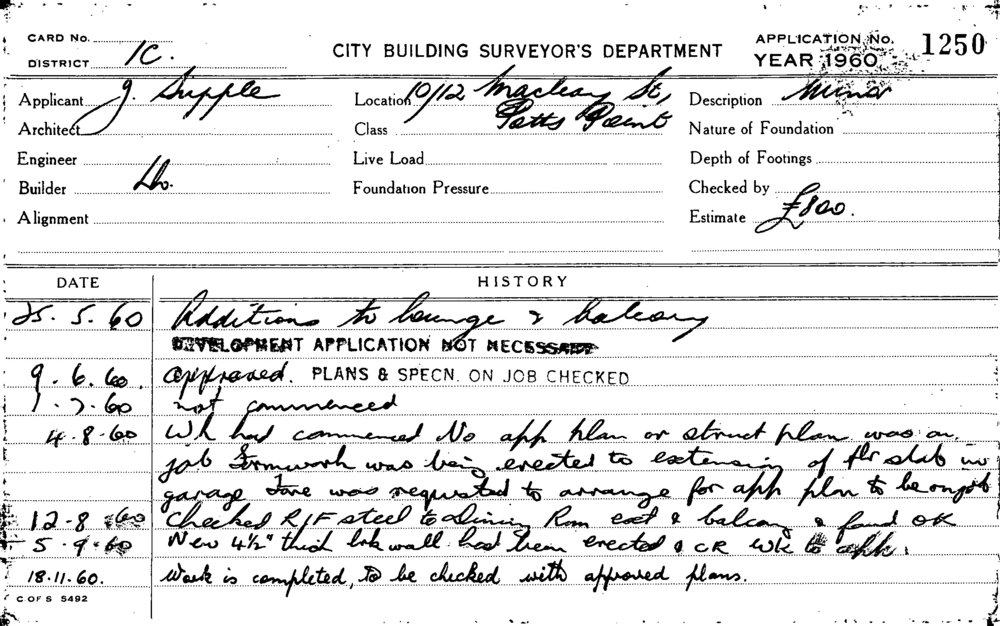 CARD No.
DISTRICT 1C.
CITY BUILDING SURVEYOR'S DEPARTMENT
APPLICATION No. 1250
YEAR 1960
Applicant J. Supple
Location 10/12 Macleay St,
Potts Point
Description Minor
Architect
Class
Nature of Foundation
Engineer
Live Load
Depth of Footings
Builder Do.
Foundation Pressure
Checked by
Alignment
Estimate £800.
DATE HISTORY
25. 5. 60 Additions to lounge & balcony
DEVELOPMENT APPLICATION NOT NECESSARY
9. 6. 60. Approved. PLANS & SPECN. ON JOB CHECKED
1. 7. 60 not commenced
4. 8. 60 Wk had commenced No app plan or struct plan was on
job Formwork was being erected to extension of flr slab in
garage Fore was requested to arrange for app plan to be on job
12-8-60 Checked R/F steel to Dining Rom ext & balcony & found OK
5-9-60 New 4½" thick brk wall had been erected & CR Wk to app.
18.11.60. Work is completed, to be checked with approved plans.
C OF S 5492